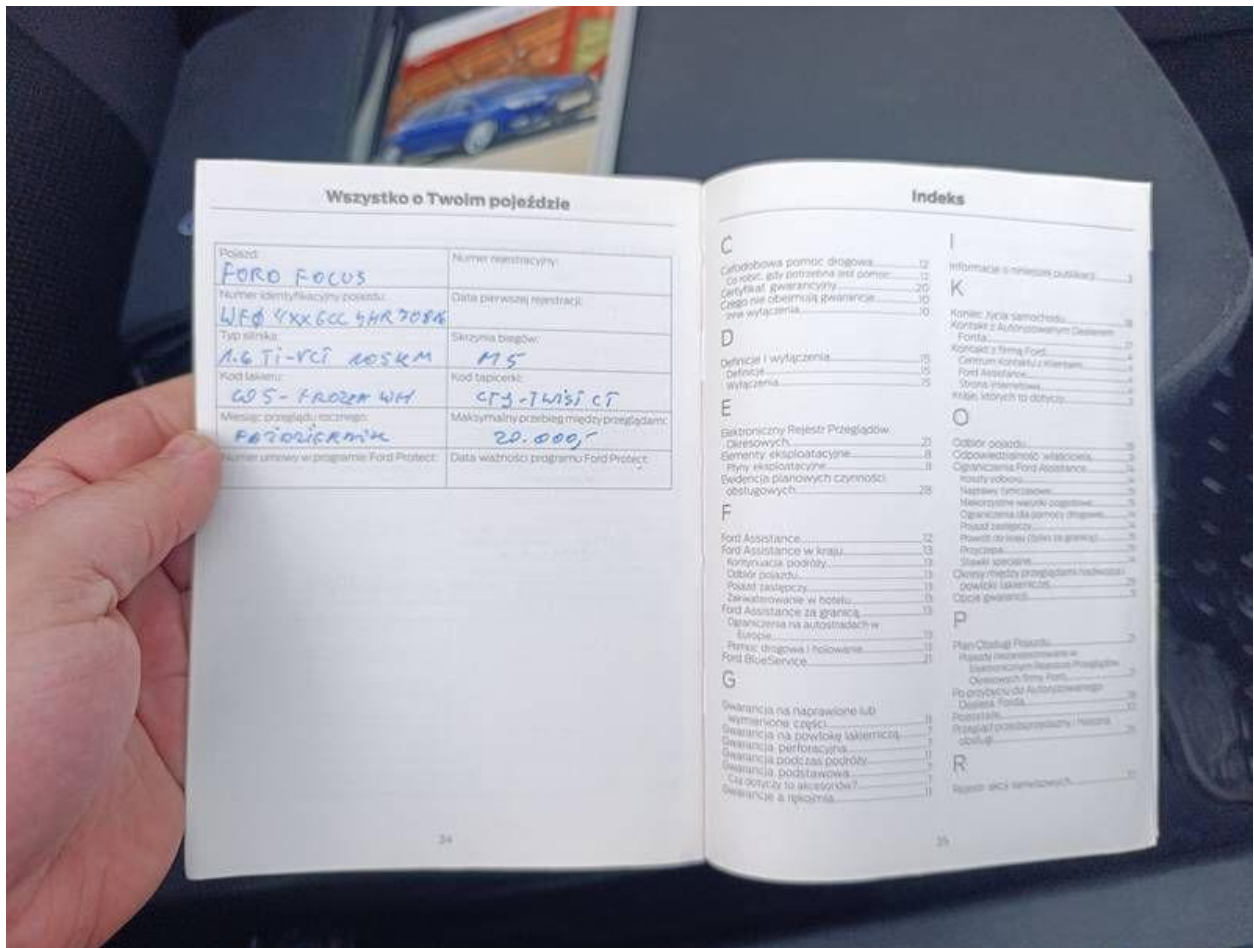 Wszystko o Twoim pojeździe
Pojazd:
FORD FOCUS
Numer rejestracyjny:
Numer identyfikacyjny pojazdu:
Data pierwszej rejestracji:
Typ silnika:
1.6 Ti-VCT 105KM
Skrzynia biegów:
M5
Kod lakieru:
Kod tapicerki:
Miesiąc przeglądu rocznego:
PAŹDZIERNIK
Maksymalny przebieg między przeglądami:
20.000,-
Numer umowy w programie Ford Protect:
Data ważności programu Ford Protect:
34
Indeks
C
Całodobowa pomoc drogowa 12
Co robić, gdy potrzebna jest pomoc 12
Certyfikat gwarancyjny 20
Czego nie obejmują gwarancje 10
Inne wyłączenia 10
D
Definicje i wyłączenia 15
Definicje 15
Wyłączenia 15
E
Elektroniczny Rejestr Przeglądów
Okresowych 21
Elementy eksploatacyjne 8
Płyny eksploatacyjne 8
Ewidencja planowych czynności
obsługowych 28
F
Ford Assistance 12
Ford Assistance w kraju 13
Kontynuacja podróży 13
Odbiór pojazdu 13
Pojazd zastępczy 13
Zakwaterowanie w hotelu 13
Ford Assistance za granicą 13
Ograniczenia na autostradach w
Europie 13
Pomoc drogowa i holowanie 13
Ford BlueService 21
G
Gwarancja na naprawione lub
wymienione części 11
Gwarancja na powłokę lakierniczą 7
Gwarancja perforacyjna 7
Gwarancja podczas podróży 11
Gwarancja podstawowa 7
Czy dotyczy to akcesoriów? 7
Gwarancje a rękojmia 11
I
Informacje o niniejszej publikacji 3
K
Koniec życia samochodu
Kontakt z Autoryzowanym Dealerem
Forda
Kontakt z firmą Ford
Centrum Kontaktu z Klientami
Ford Assistance
Strona internetowa
Kraje, których to dotyczy
O
Odbiór pojazdu
Odpowiedzialność właściciela
Ograniczenia Ford Assistance
Koszty odbioru
Naprawy tymczasowe
Niekorzystne warunki pogodowe
Ograniczenia dla pomocy drogowej
Pojazd zastępczy
Powrót do kraju (tylko za granicą)
Przyczepa
Stawki specjalne
Okresy między przeglądami nadwozia i
powłoki lakierniczej
Opcja gwarancji
P
Plan Obsługi Pojazdu
Pojazdy niezarejestrowane w
Elektronicznym Rejestrze Przeglądów
Okresowych firmy Ford
Po przybyciu do Autoryzowanego
Dealera Forda
Pozostałe
Przegląd przedsprzedażny i historia
obsługi
R
Rejestr akcji serwisowych
35